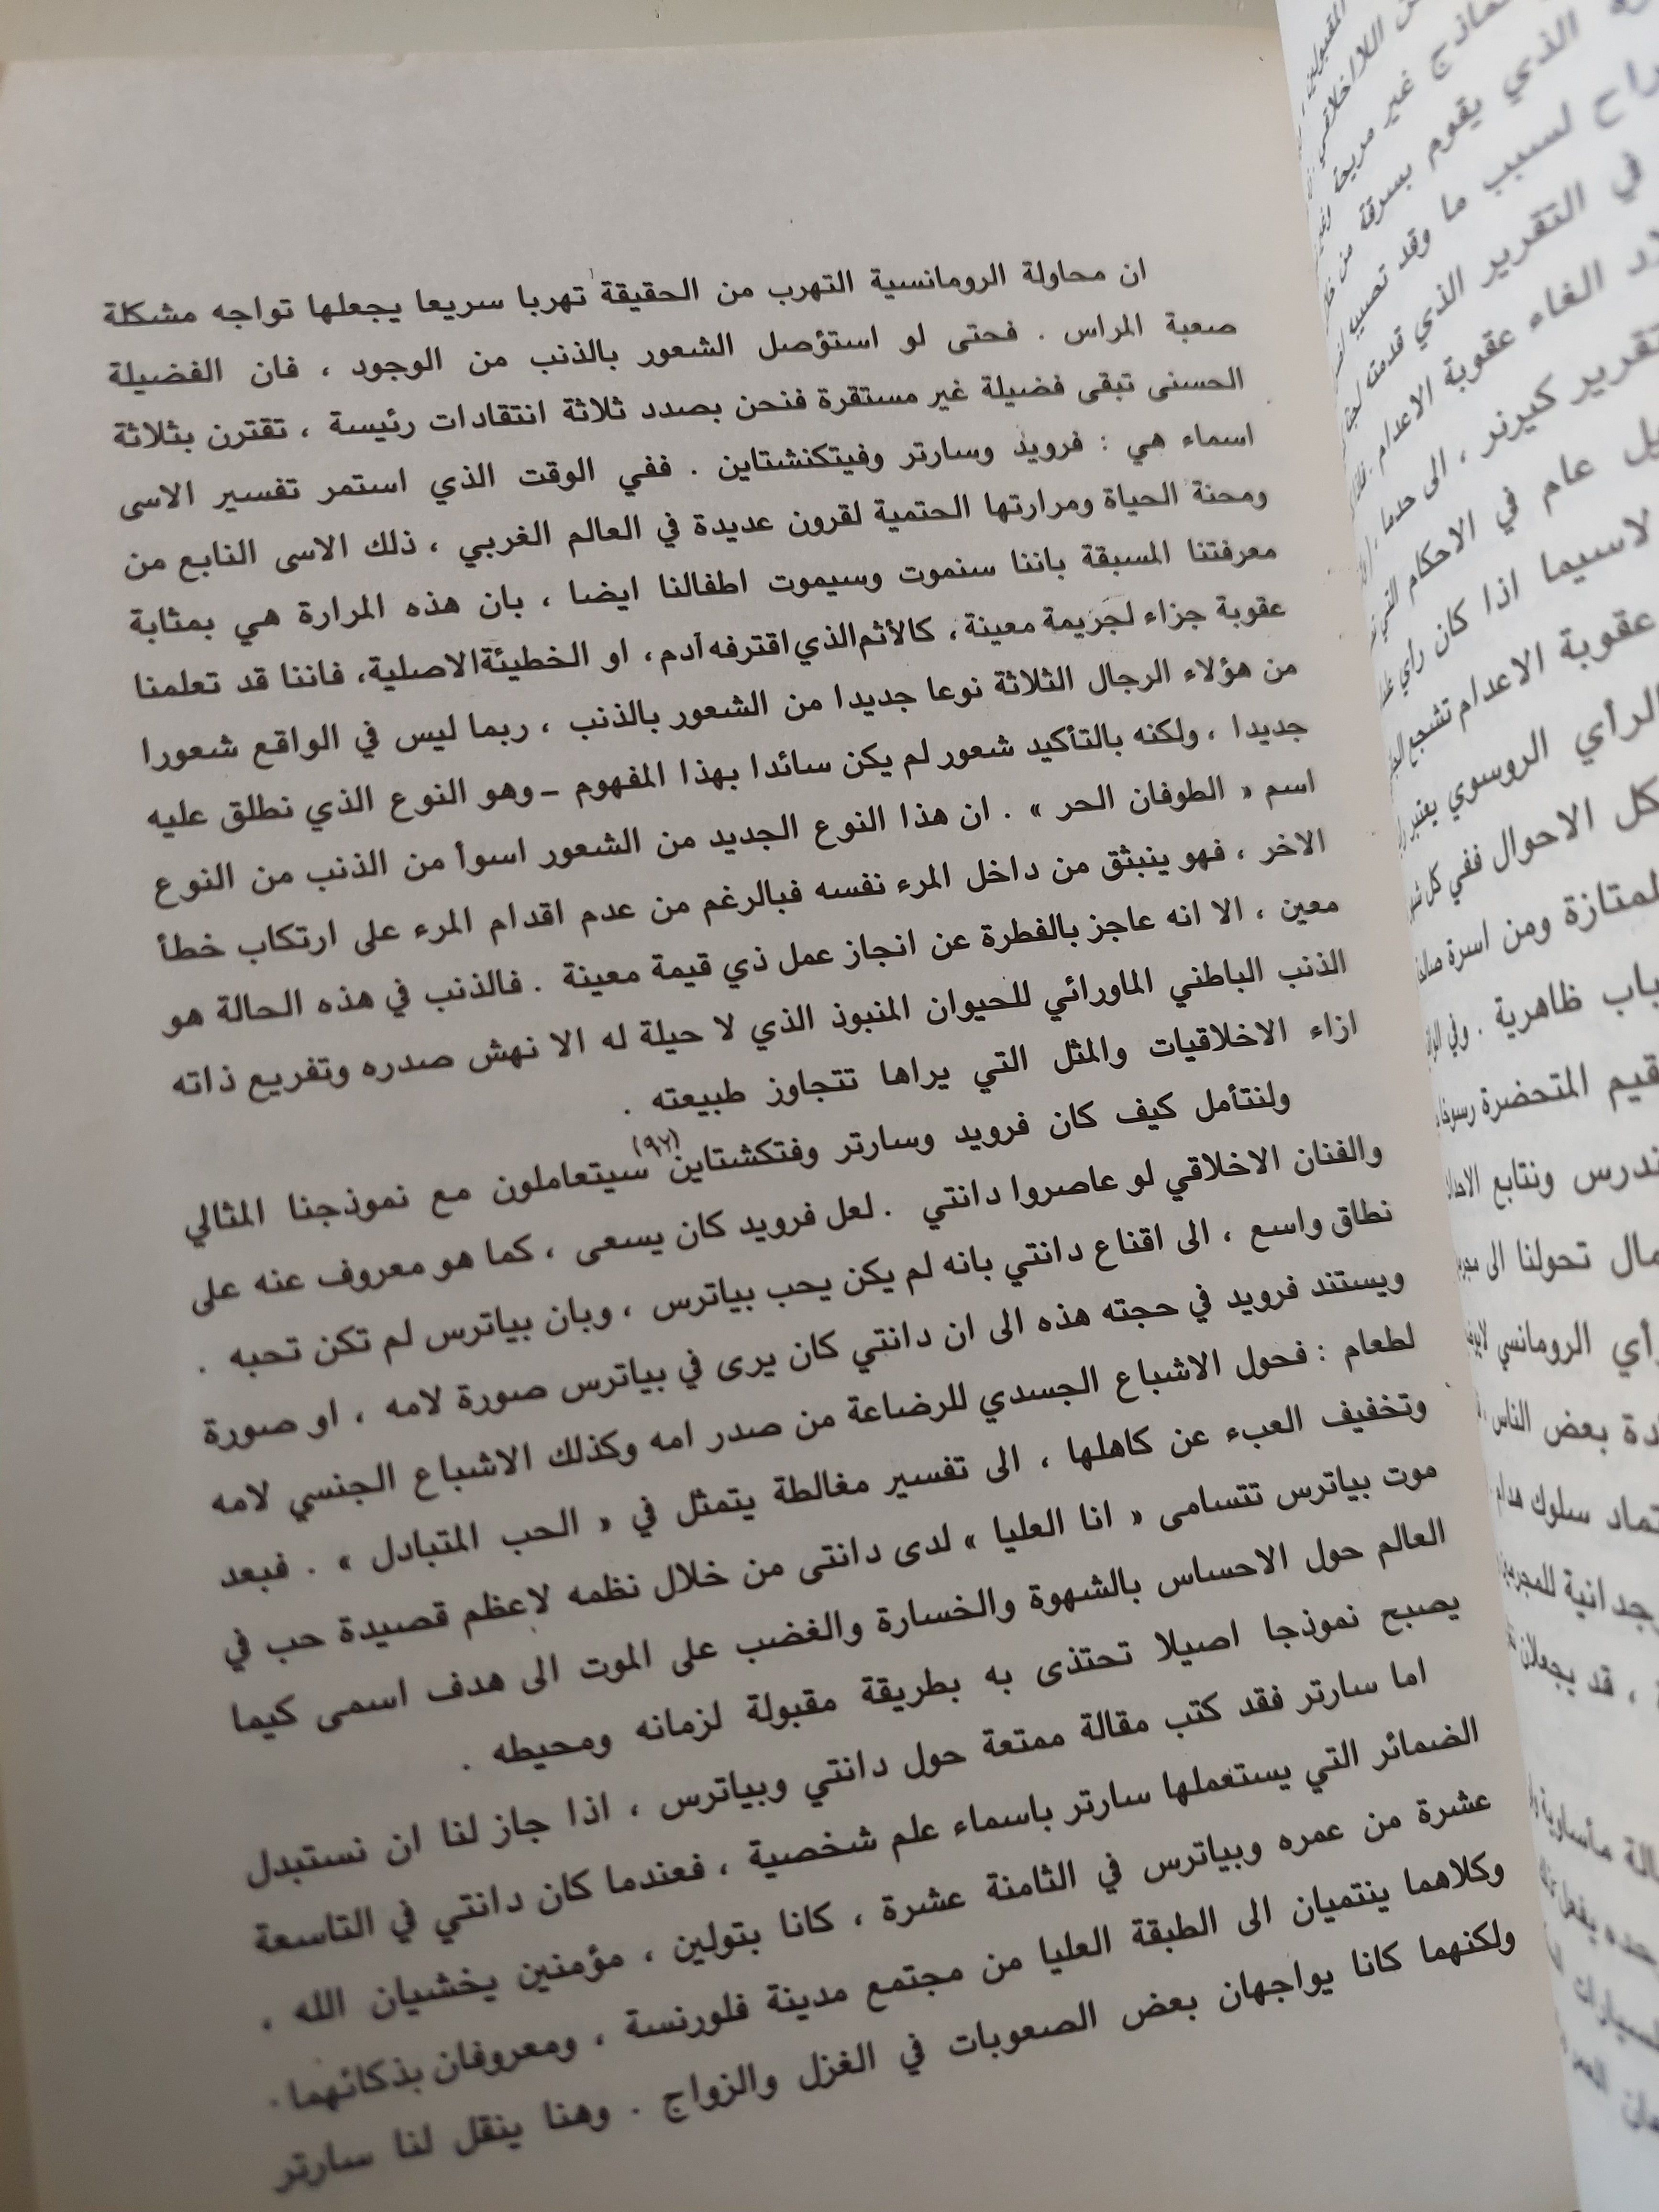 ان محاولة الرومانسية التهرب من الحقيقة تهربا سريعا يجعلها تواجه مشكلة
صعبة المراس . فحتى لو استؤصل الشعور بالذنب من الوجود ، فان الفضيلة
الحسنى تبقى فضيلة غير مستقرة فنحن بصدد ثلاثة انتقادات رئيسة ، تقترن بثلاثة
اسماء هي : فرويد وسارتر وفيتكنشتاين . ففي الوقت الذي استمر تفسير الاسى
ومحنة الحياة ومرارتها الحتمية لقرون عديدة في العالم الغربي ، ذلك الاسى النابع من
معرفتنا المسبقة باننا سنموت وسيموت اطفالنا ايضا ، بان هذه المرارة هي بمثابة
عقوبة جزاء لجريمة معينة ، كالأثم الذي اقترفه آدم ، او الخطيئة الاصلية، فاننا قد تعلمنا
من هؤلاء الرجال الثلاثة نوعا جديدا من الشعور بالذنب ، ربما ليس في الواقع شعورا
جديدا ، ولكنه بالتأكيد شعور لم يكن سائدا بهذا المفهوم – وهو النوع الذي نطلق عليه
اسم « الطوفان الحر » . ان هذا النوع الجديد من الشعور اسوأ من الذنب من النوع
الاخر ، فهو ينبثق من داخل المرء نفسه فبالرغم من عدم اقدام المرء على ارتكاب خطأ
معين ، الا انه عاجز بالفطرة عن انجاز عمل ذي قيمة معينة . فالذنب في هذه الحالة هو
الذنب الباطني الماورائي للحيوان المنبوذ الذي لا حيلة له الا نهش صدره وتفريع ذاته
ازاء الاخلاقيات والمثل التي يراها تتجاوز طبيعته .
ولنتأمل كيف كان فرويد وسارتر وفتكشتاين(٩٧) سيتعاملون مع نموذجنا المثالي
والفنان الاخلاقي لو عاصروا دانتي . لعل فرويد كان يسعى ، كما هو معروف عنه على
نطاق واسع ، الى اقناع دانتي بانه لم يكن يحب بياترس ، وبان بياترس لم تكن تحبه .
ويستند فرويد في حجته هذه الى ان دانتي كان يرى في بياترس صورة لامه ، او صورة
لطعام : فحول الاشباع الجسدي للرضاعة من صدر امه وكذلك الاشباع الجنسي لامه
وتخفيف العبء عن كاهلها ، الى تفسير مغالطة يتمثل في « الحب المتبادل » . فبعد
موت بياترس تتسامى « انا العليا » لدى دانتى من خلال نظمه لاعظم قصيدة حب في
العالم حول الاحساس بالشهوة والخسارة والغضب على الموت الى هدف اسمى كيما
يصبح نموذجا اصيلا تحتذى به بطريقة مقبولة لزمانه ومحيطه .
اما سارتر فقد كتب مقالة ممتعة حول دانتي وبياترس ، اذا جاز لنا ان نستبدل
الضمائر التي يستعملها سارتر باسماء علم شخصية ، فعندما كان دانتي في التاسعة
عشرة من عمره وبياترس في الثامنة عشرة ، كانا بتولين ، مؤمنين يخشيان الله ،
وكلاهما ينتميان الى الطبقة العليا من مجتمع مدينة فلورنسة ، ومعروفان بذكائهما .
ولكنهما كانا يواجهان بعض الصعوبات في الغزل والزواج . وهنا ينقل لنا سارتر
الذي يقوم بسرقة من
لسبب ما وقد تصيب
في التقرير الذي قدمته
الغاء عقوبة الاعدام
تقرير كيرنر ، الى حدما
عام في الاحكام التي
لاسيما اذا كان رأي
عقوبة الاعدام تشجع
الرأي الروسوي يعتبر
كل الاحوال ففي كل
ومن اسرة
ظاهرية . وفي
قيم المتحضرة
ندرس ونتابع
تحولنا الى
الرومانسي
بعض الناس
سلوك هدام
، قد يجعلان